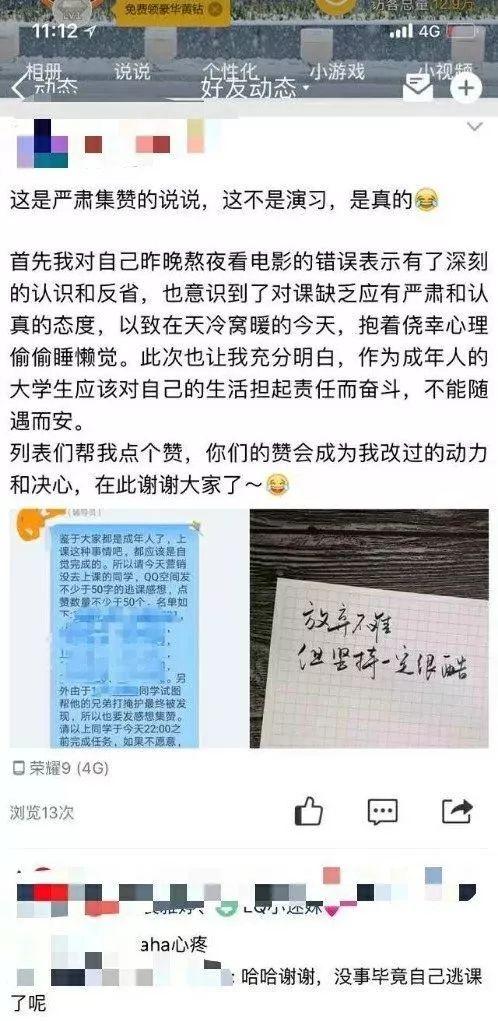 免费领豪华黄钻
访客总量 12.9万
11:12
4G
相册 说说 个性化 小游戏 小视频
动态 好友动态
这是严肃集赞的说说，这不是演习，是真的😂
首先我对自己昨晚熬夜看电影的错误表示有了深刻
的认识和反省，也意识到了对课缺乏应有严肃和认
真的态度，以致在天冷窝暖的今天，抱着侥幸心理
偷偷睡懒觉。此次也让我充分明白，作为成年人的
大学生应该对自己的生活担起责任而奋斗，不能随
遇而安。
列表们帮我点个赞，你们的赞会成为我改过的动力
和决心，在此谢谢大家了～😂
(辅导员)
鉴于大家都是成年人了，上
课这种事情吧，都应该是自
觉完成的。所以请今天营销
没去上课的同学，QQ空间发
不少于50字的逃课感想，点
赞数量不少于50个，名单如
下:
。另
外由于1 同学试图
帮他的兄弟打掩护最终被发
现，所以也要发感想集赞。
请以上同学于今天22:00之
前完成任务，如果不愿意，
放弃不难
但坚持一定很酷
荣耀9 (4G)
浏览13次
EQ小迷妹
aha心疼
: 哈哈谢谢，没事毕竟自己逃课
了呢